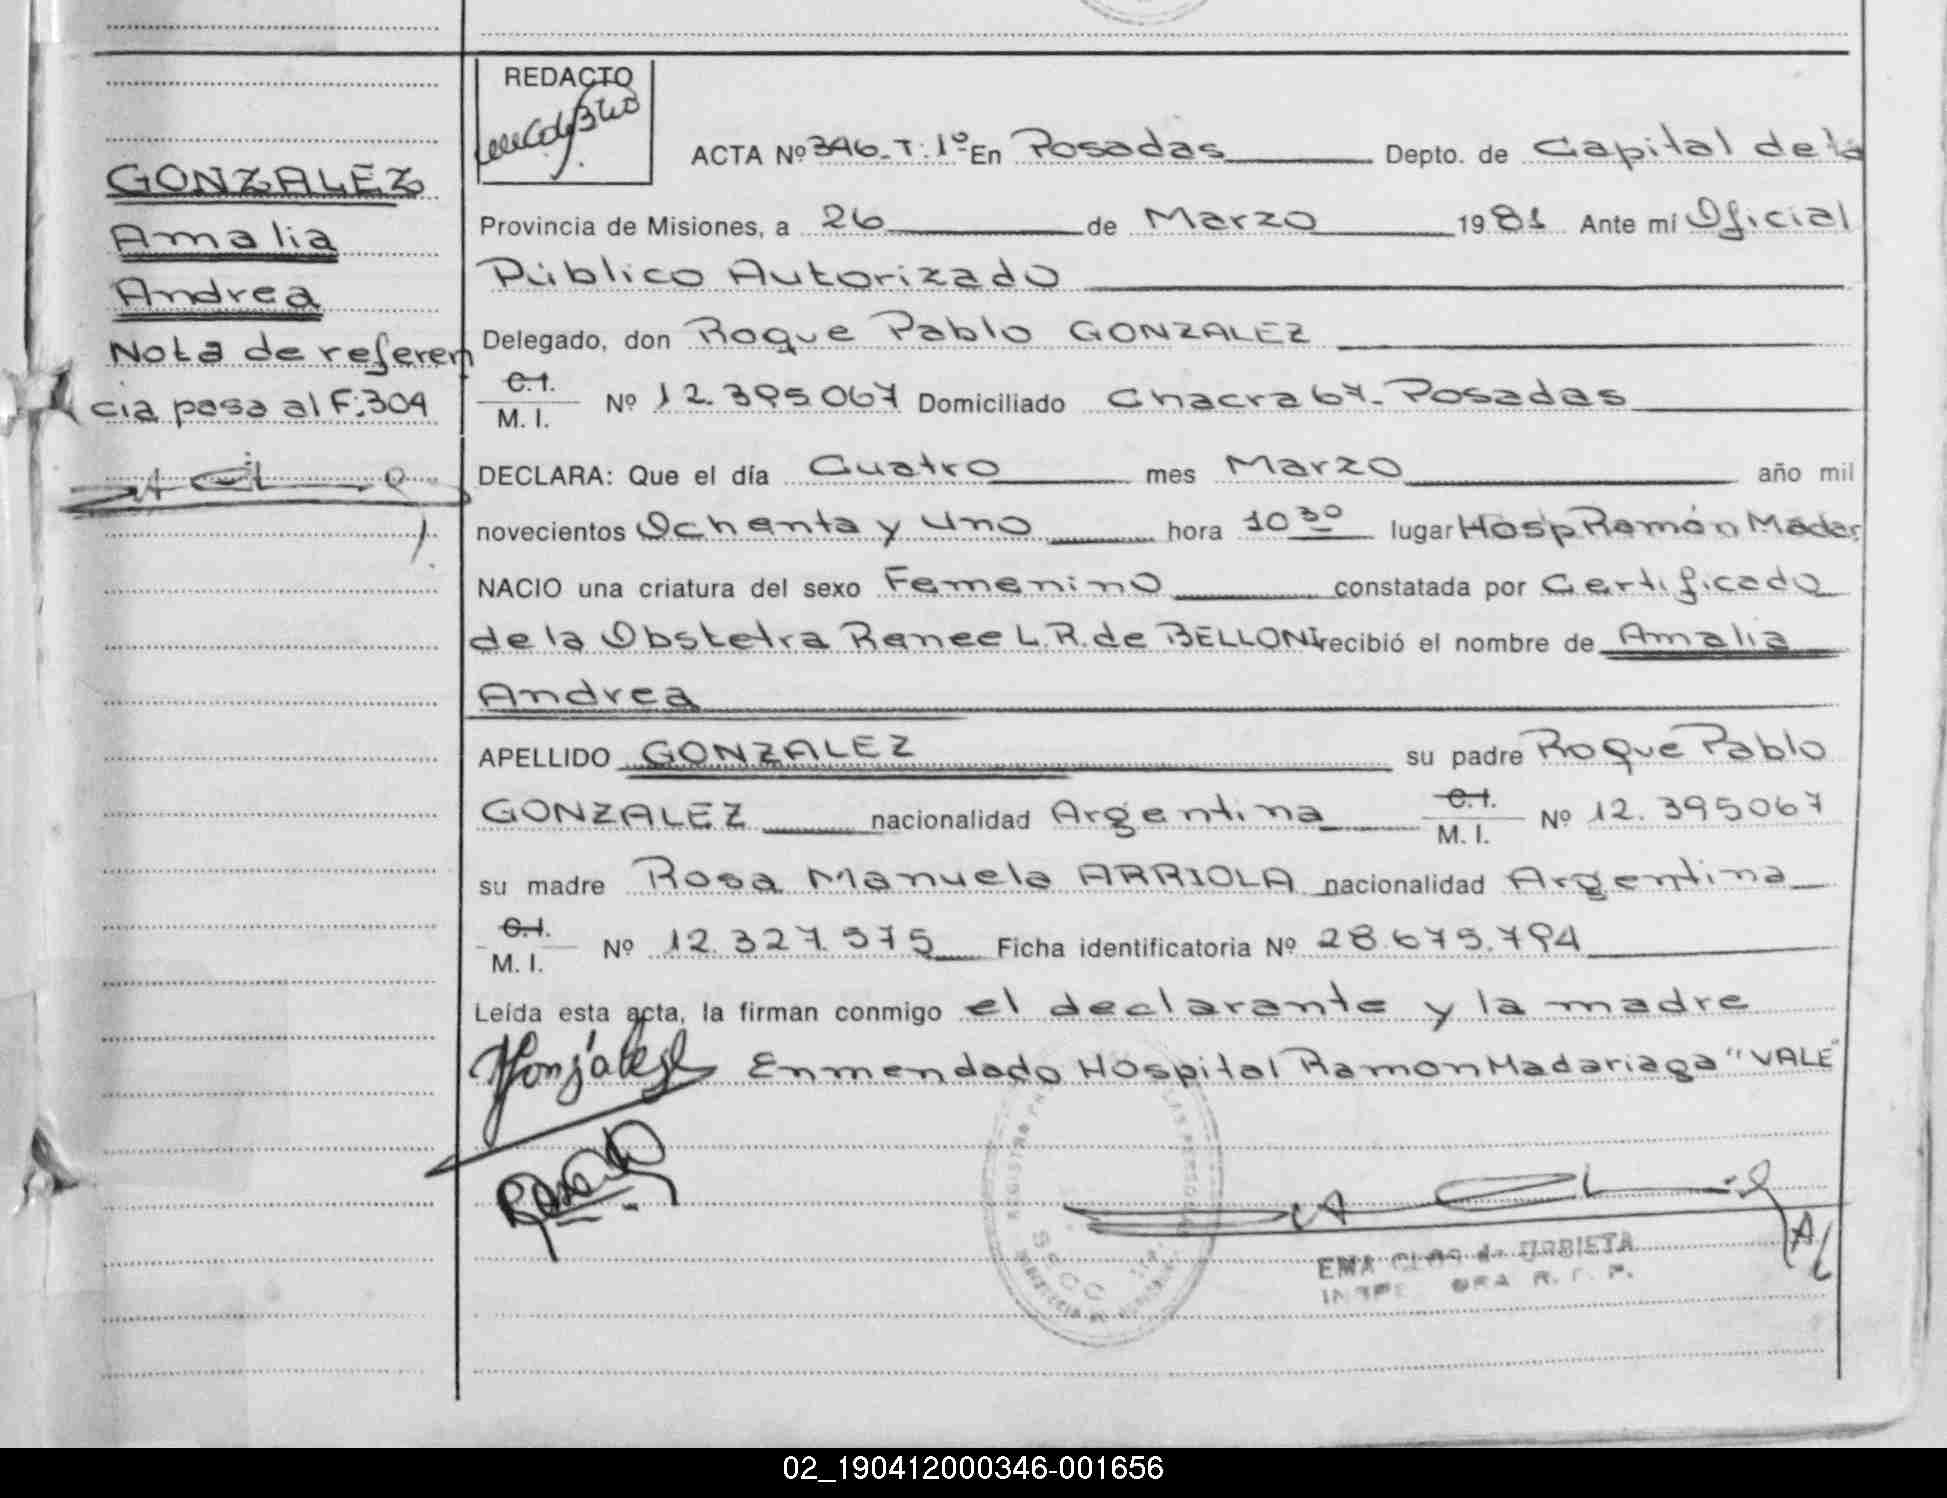 REDACTO
ACTA Nº 346-T: 1º En Posadas Depto. de Capital de la
GONZALEZ
Amalia
Andrea
Nota de referen
cia pasa al F: 304
Provincia de Misiones, a 26 de Marzo 1981 Ante mí Oficial
Público Autorizado
Delegado, don Roque Pablo GONZALEZ
C.I.
M. I. Nº 12.395067 Domiciliado Chacra 67- Posadas
DECLARA: Que el día Cuatro mes Marzo año mil
novecientos Ochenta y Uno hora 10 30 lugar Hosp Ramón Madar
NACIO una criatura del sexo Femenino constatada por Certificado
de la Obstetra Renee L. R. de BELLONI recibió el nombre de Amalia
Andrea
APELLIDO GONZALEZ su padre Roque Pablo
GONZALEZ nacionalidad Argentina C.I. M. I. Nº 12.395067
su madre Rosa Manuela ARRIOLA nacionalidad Argentina
C.I.
M. I. Nº 12.327.575 Ficha identificatoria Nº 28.675.794
Leída esta acta, la firman conmigo el declarante y la madre
Enmendado Hospital Ramon Madariaga "VALE"
EMA
R. P.
02_190412000346-001656